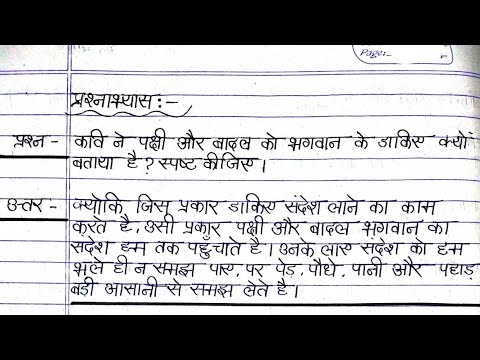 Page:-
प्रश्नाभ्यास:-
प्रश्न - कवि ने पक्षी और बादल को भगवान के डाकिए क्यों
बताया है? स्पष्ट कीजिए।
उत्तर - क्योकि जिस प्रकार डाकिए संदेश लाने का काम
करते है, उसी प्रकार पक्षी और बादल भगवान का
संदेश हम तक पहुँचाते है। उनके लाए संदेश को हम
भले ही न समझ पाए, पर पेड़, पौधे, पानी और पहाड़
बड़ी आसानी से समझ लेते है।